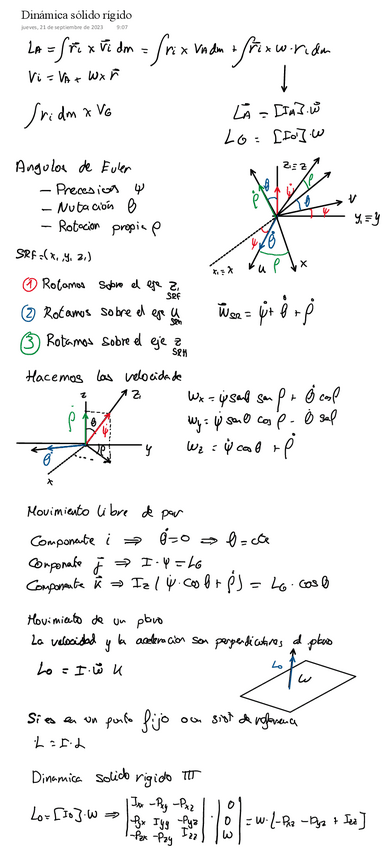 Dinámica sólido rígido
jueves, 21 de septiembre de 2023 9:07
L_A = ∫ r_i x v_i dm = ∫ r_i x V_A dm + ∫ r_i x w · r_i dm
V_i = V_A + w x r
∫ r_i dm x V_G
L_A = [I_A] · w
L_G = [I_G] · w
Angulos de Euler
— Precesion ψ
— Nutación θ
— Rotacion propia ρ
SRF = (x, y, z,)
① Rotamos sobre el eje z, SRF
② Rotamos sobre el eje u
③ Rotamos sobre el eje z SRM
z₁ ≡ z
ρ
θ
ψ
V
y₁ ≡ y
x₁ ≡ x
u
x
w_SR = ψ + θ + ρ
Hacemos las velocidade
z
z₁
ρ
θ
ψ
y
x
w_x = ψ senθ sen ρ + θ cosρ
w_y = ψ senθ cos ρ - θ senρ
w_z = ψ cosθ + ρ
Movimiento libre de par
Componente i ⇒ θ = 0 ⇒ θ = cte
Componente j ⇒ I · ψ = L_G
Componente k ⇒ I_z ( ψ · cos θ + ρ ) = L_G · cosθ
Movimiento de un plano
La velocidad y la aceleracion son perpendiculares al plano
L_O = I · w k
L_O
w
Si es en un punto fijo o un sist de referencia
L = I · L
Dinamica solido rigido III
L_O = [I_O] · w ⇒ | I_xx -P_xy -P_xz | · | 0 | = w · [-P_xz - P_yz + I_zz]
| -P_yx I_yy -P_yz | | 0 |
| -P_zx -P_zy I_zz | | w |